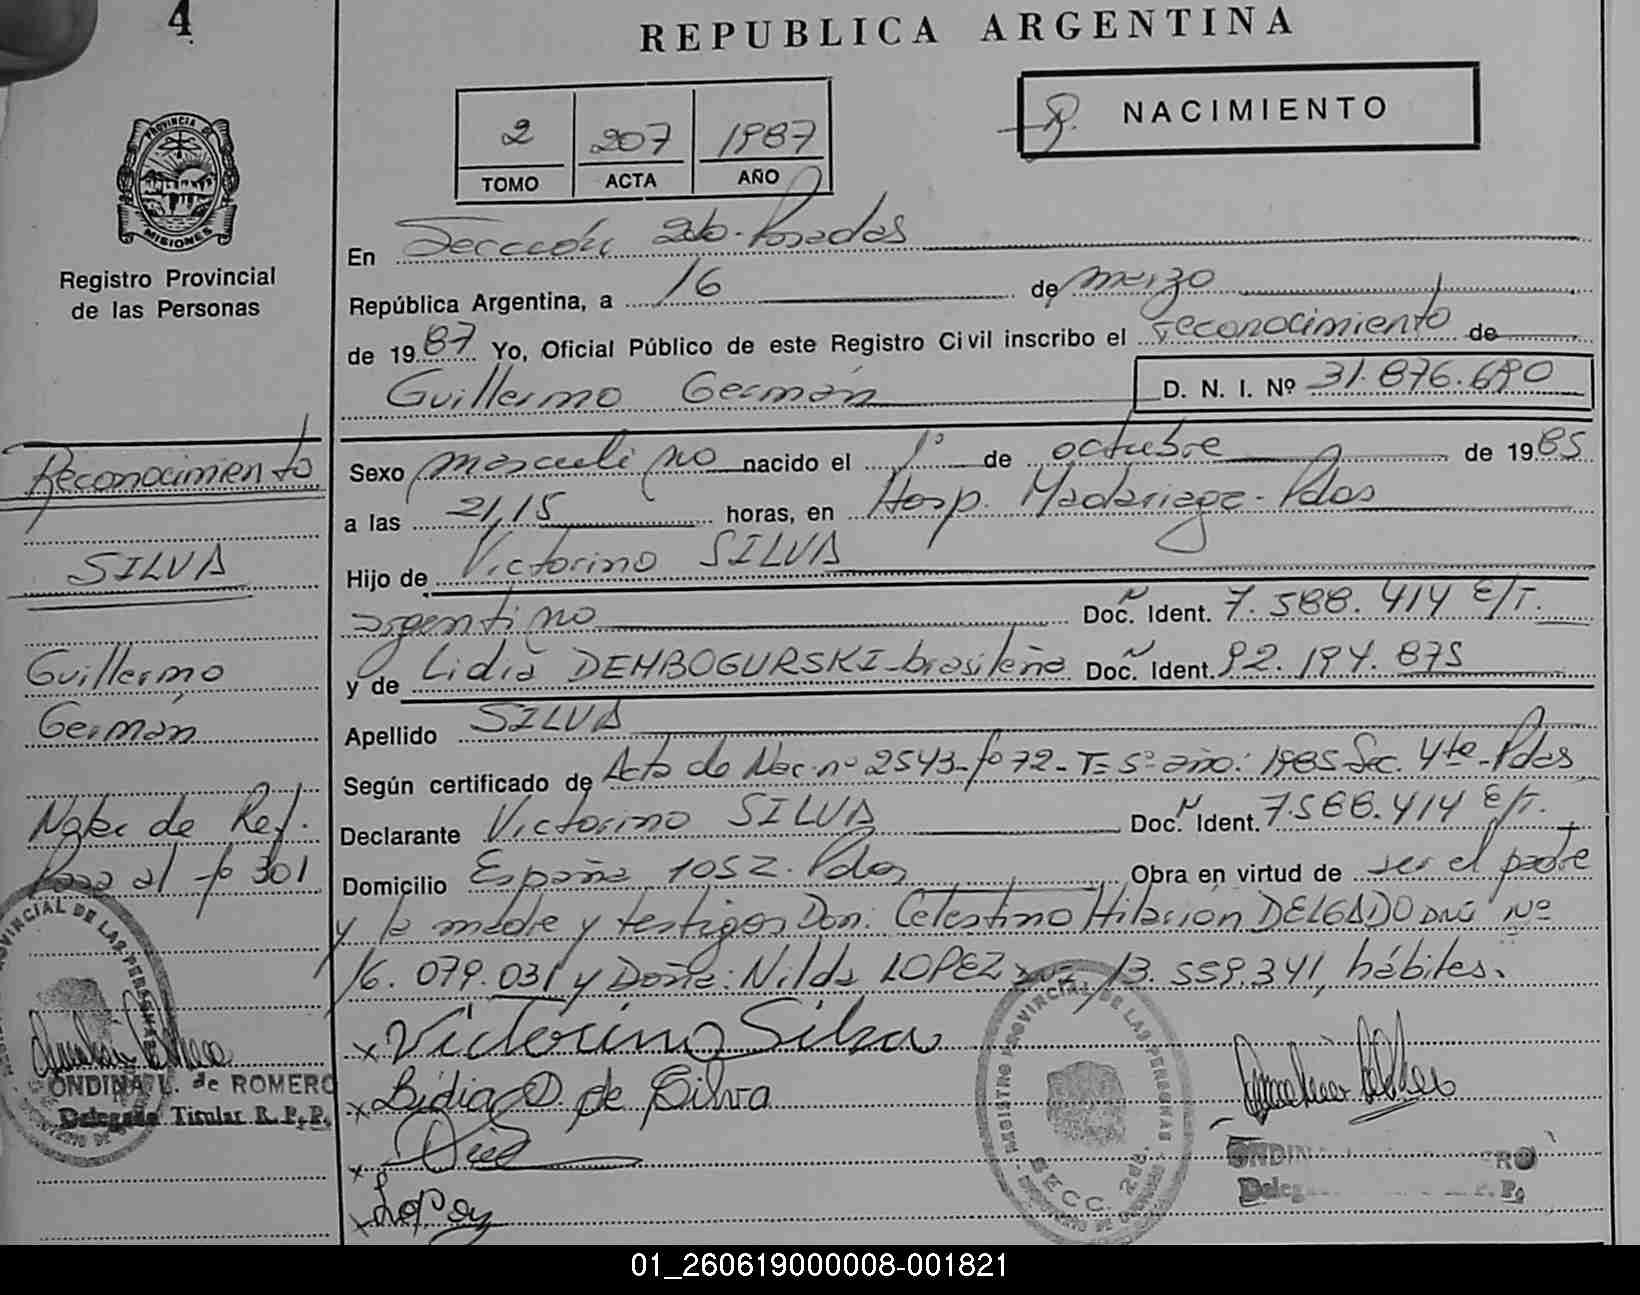 4
REPUBLICA ARGENTINA
2 207 1987
TOMO ACTA AÑO
R. NACIMIENTO
PROVINCIA DE
MISIONES
Registro Provincial
de las Personas
En Sección 2da. Posadas
República Argentina, a 16 de marzo
de 1987 Yo, Oficial Público de este Registro Civil inscribo el reconocimiento de
Guillermo Germán D. N. I. Nº 31.876.690
Sexo masculino nacido el 1º de octubre de 1985
a las 21,15 horas, en Hosp. Madariaga - Pdas
Hijo de Victorino SILVA
argentino Doc. Ident. 7.588.414 E/T.
y de Lidia DEMBOGURSKI - brasileña Doc. Ident. 92.194.875
Apellido SILVA
Según certificado de Acta de Nac. nº 2543 - fº 72 - T= 5º año: 1985 Sec. 4ta - Pdas
Declarante Victorino SILVA Doc. Ident. 7.588.414 E/T.
Domicilio España 1052. Pdas Obra en virtud de ser el padre
y la madre y testigos Don: Celestino Hilarion DELGADO DNI Nº
16.079.031 y Doña: Nilda LOPEZ DNI 13.559.341, hábiles.
Victorino Silva
Lidia D. de Silva
Lopez
Reconocimiento
SILVA
Guillermo
Germán
Nota de Ref.
Pasa al fº 301
ONDINA L. de ROMERO
Delegada Titular R. P. P.
REGISTRO PROVINCIAL DE LAS PERSONAS
SECC. 2da.